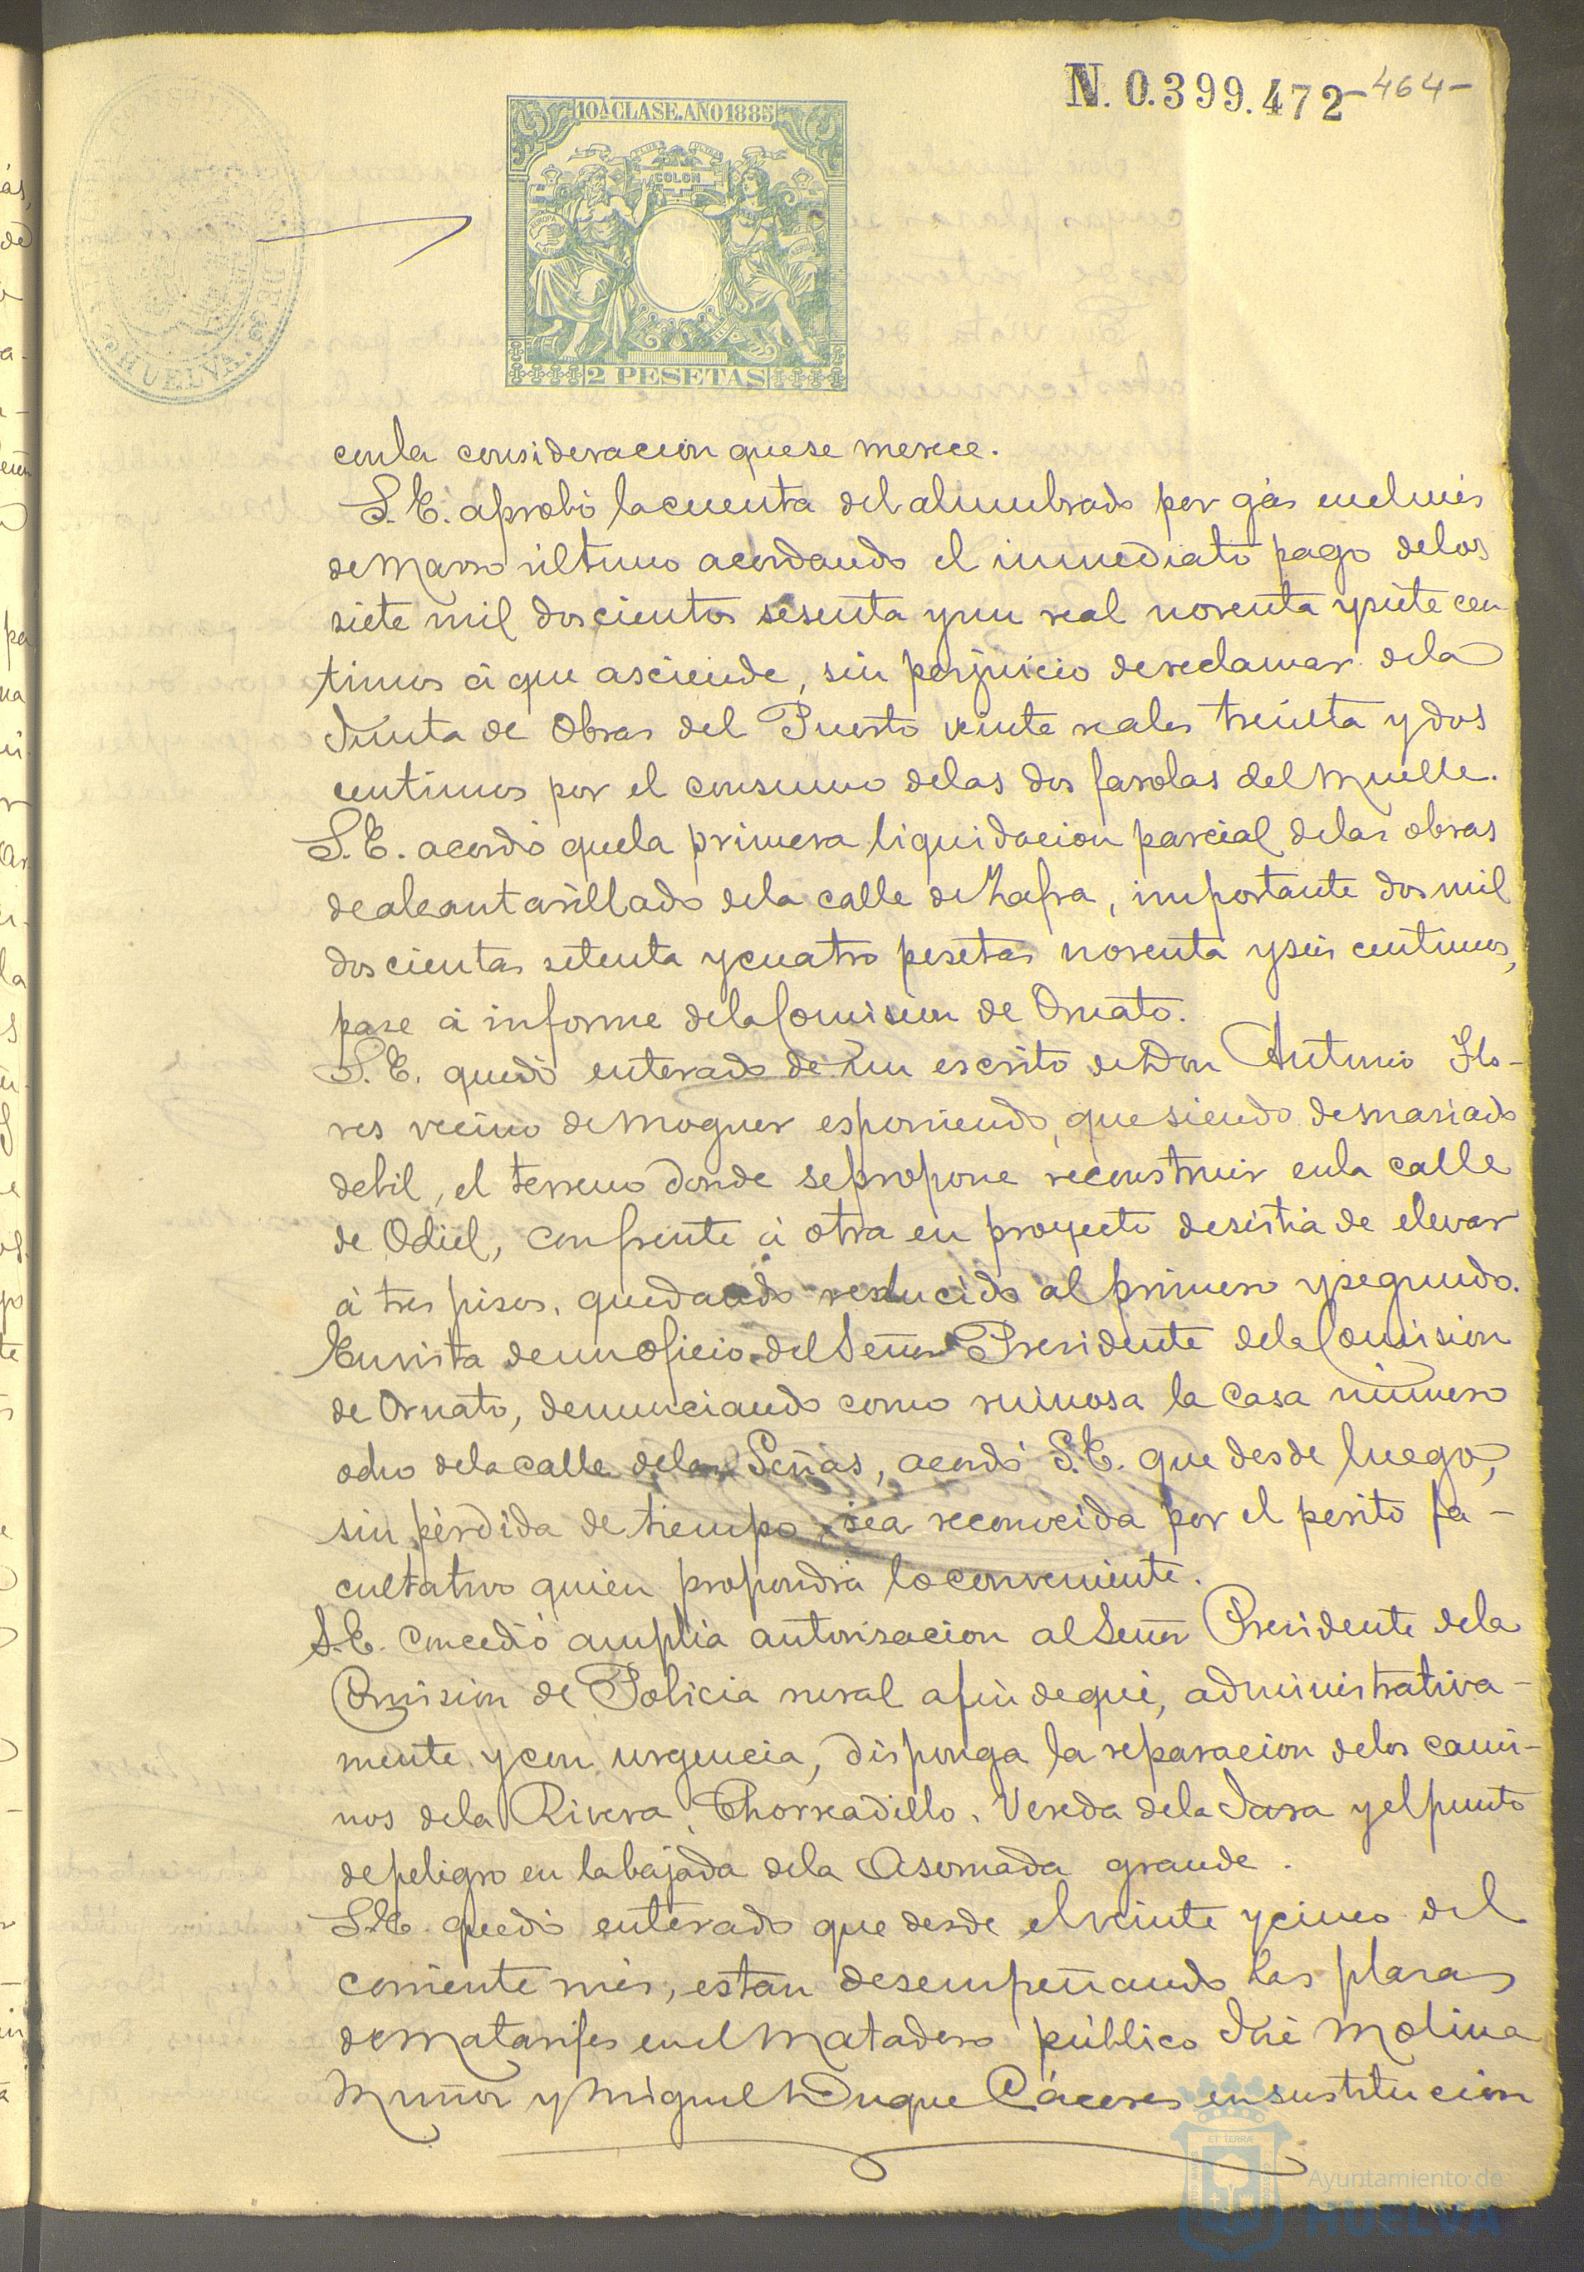 N. 0.399.472 -464-
10ª CLASE. AÑO 1885
PLUS ULTRA
COLON
EUROPA
2 PESETAS
HUELVA
con la consideracion que se merece.
S.E. aprobó la cuenta del alumbrado por gás en el més
de Marzo último acordando el inmediato pago de los
siete mil doscientos sesenta y un real noventa y siete cen-
timos á que asciende, sin perjuicio de reclamar de la
Junta de Obras del Puerto veinte reales treinta y dos
centimos por el consumo de las dos farolas del Muelle.
S.E. acordó que la primera liquidacion parcial de las obras
de alcantarillado de la calle de Zafra, importante dos mil
doscientas setenta y cuatro pesetas noventa y seis centimos,
pase á informe de la Comision de Ornato.
S.E. quedó enterado de un escrito de Don Antonio Flo-
res vecino de Moguer esponiendo, que siendo demasiado
debil, el terreno donde se propone reconstruir en la calle
de Odiel, con frente á otra en proyecto desistia de elevar
á tres pisos, quedando reducido al primero y segundo.
En vista de un oficio del Señor Presidente de la Comision
de Ornato, denunciando como ruinosa la casa número
ocho de la calle de las Peñas, acordó S.E. que desde luego,
sin pérdida de tiempo, sea reconocida por el perito fa-
cultativo quien propondrá lo conveniente.
S.E. concedió amplia autorizacion al Señor Presidente de la
Comision de Policia rural a fin de que, administrativa-
mente y con urgencia, disponga la reparacion de los cami-
nos de la Rivera, Chorreadillo, Vereda de la Jara y el punto
de peligro en la bajada de la Asomada grande.
S.E. quedó enterado que desde el veinte y cinco del
corriente més, estan desempeñando las plazas
de Matarifes en el Matadero público José Molina
Muñoz y Miguel Duque Cáceres en sustitucion
Ayuntamiento de
HUELVA